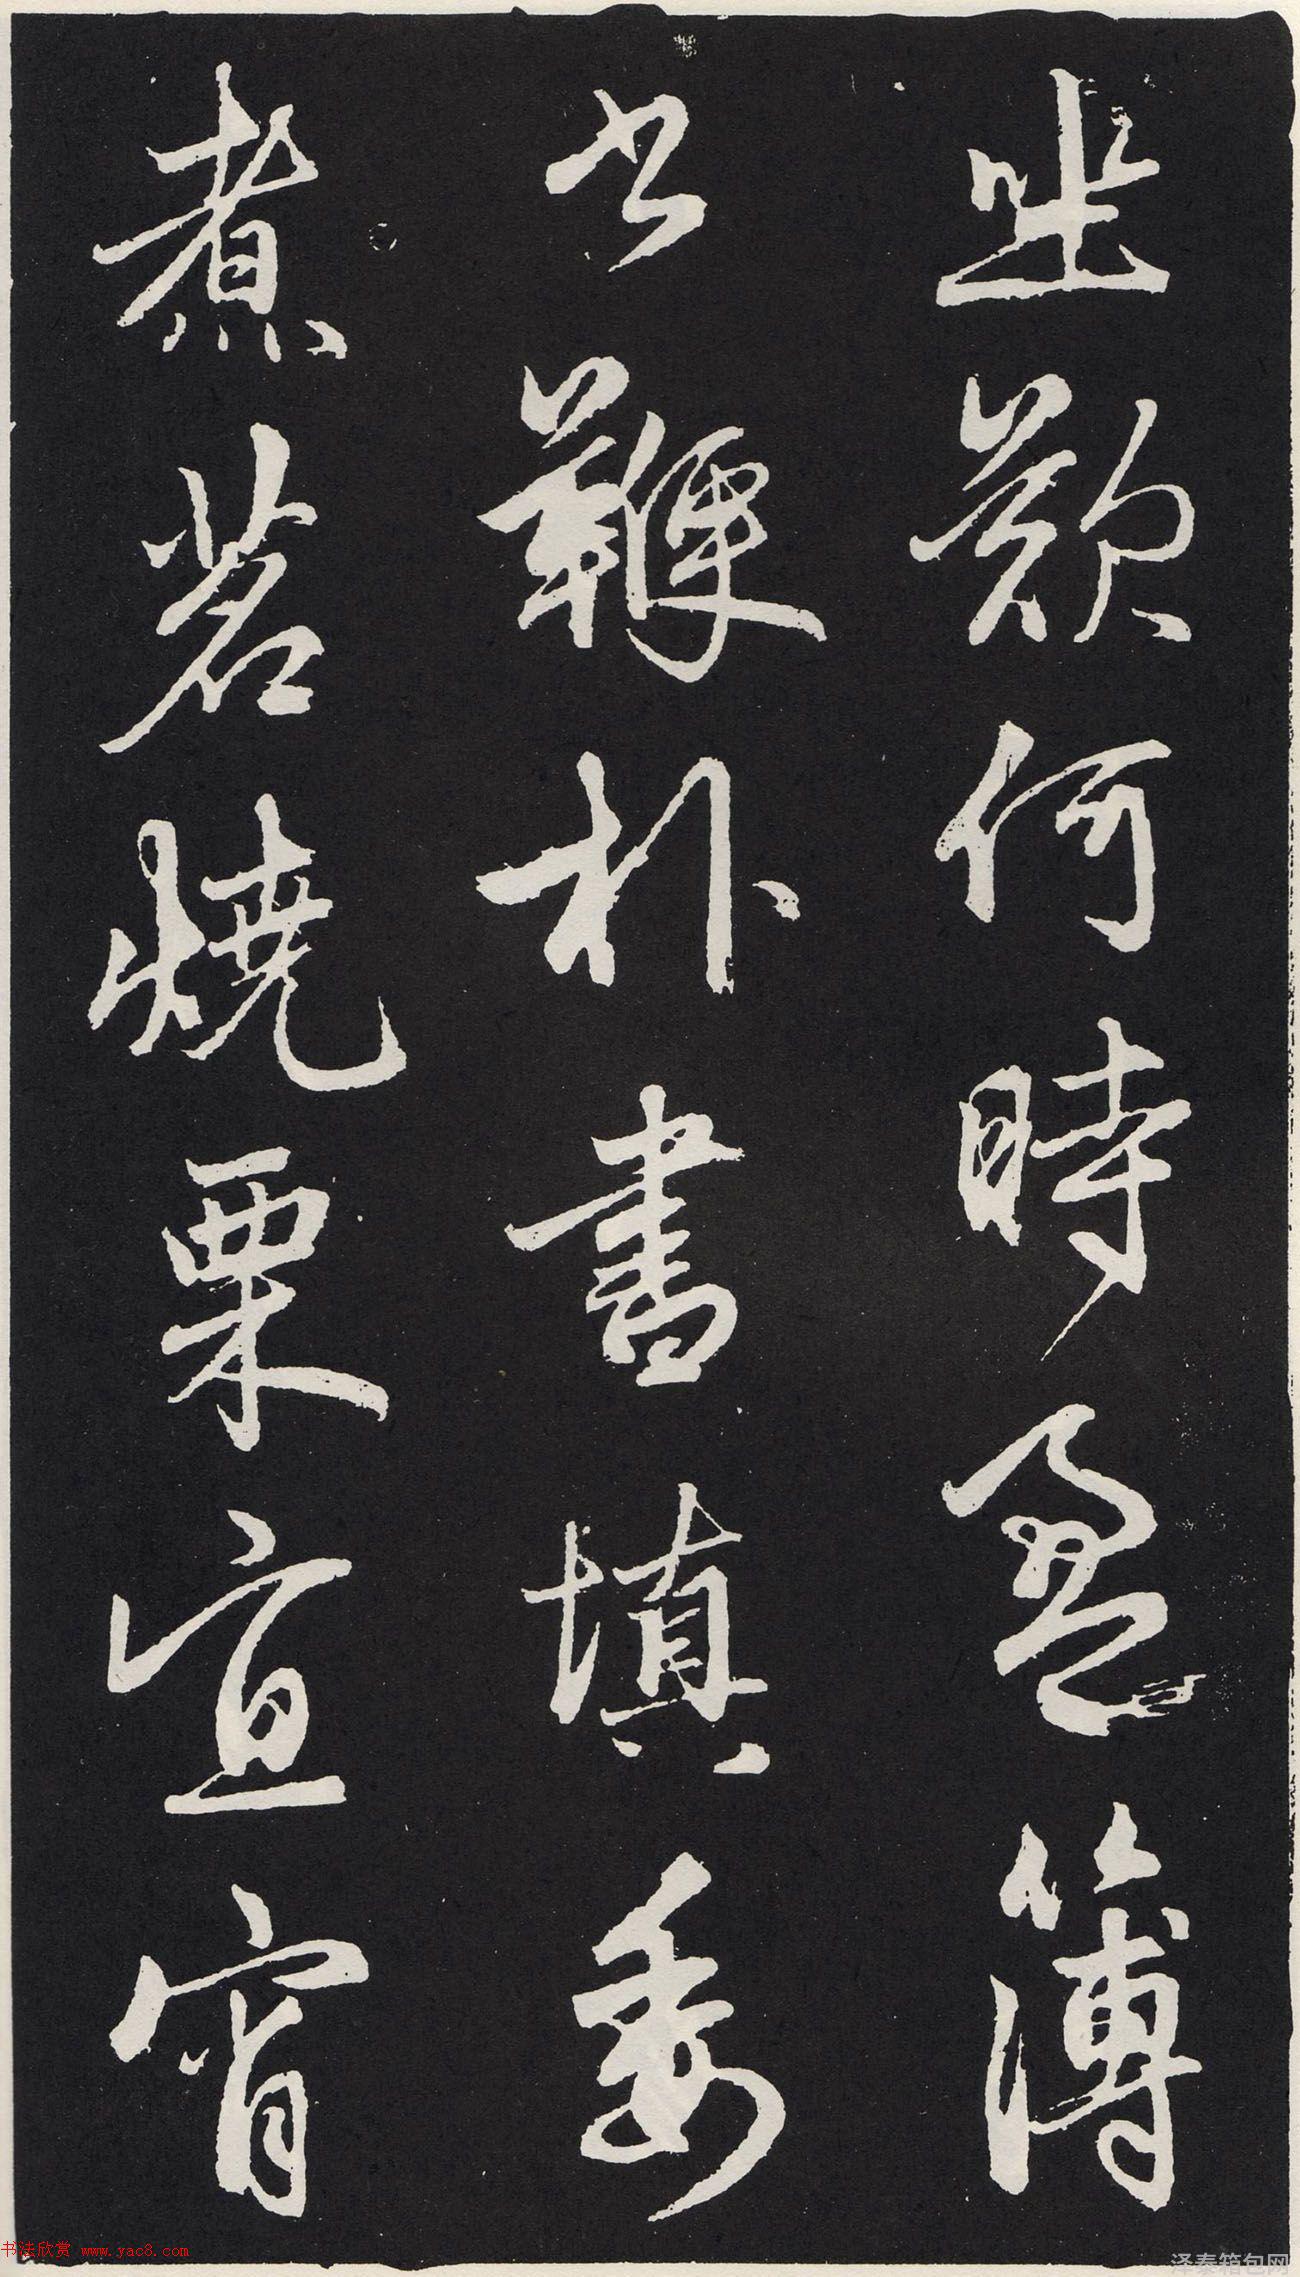 坐歎何時盈簿
书鞭朴書填委
煮茗燒栗宜宵
书法欣赏 www.yac8.com
泽泰箱包网